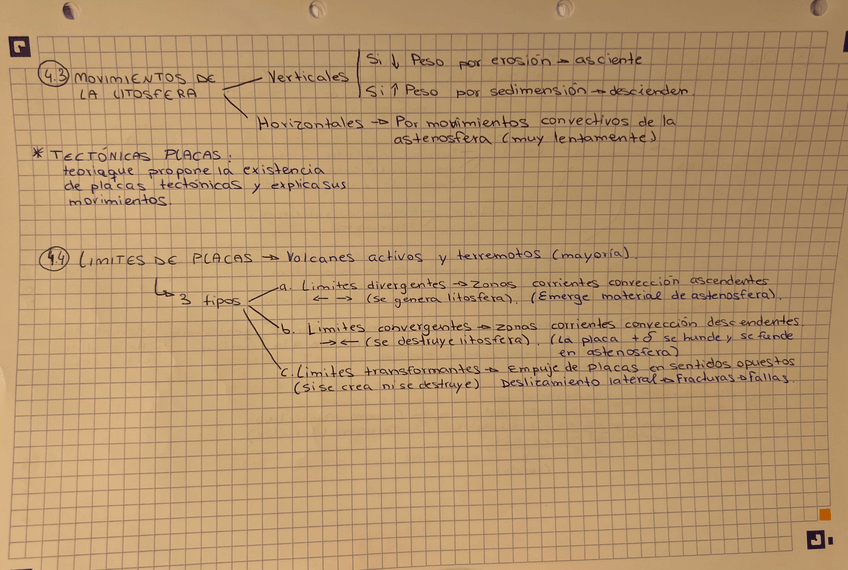 Si ↓ Peso por erosión → asciente
4.3 MOVIMIENTOS DE Verticales
LA LITOSFERA
Si ↑ Peso por sedimensión → descienden.
Horizontales → Por movimientos convectivos de la
astenosfera (muy lentamente)
* TECTÓNICAS PLACAS:
teoria que propone la existencia
de placas tectónicas y explica sus
movimientos.
4.4 LIMITES DE PLACAS → Volcanes activos y terremotos (mayoría).
↳ 3 tipos
a. Limites divergentes → zonas corrientes convección ascendentes
← → (se genera litosfera). (Emerge material de astenosfera).
b. Limites convergentes → zonas corrientes convección descendentes.
→ ← (se destruye litosfera). (La placa + δ se hunde y se funde
en astenosfera)
c. Limites transformantes → Empuje de placas en sentidos opuestos
(si se crea ni se destruye) Deslizamiento lateral → Fracturas o fallas.